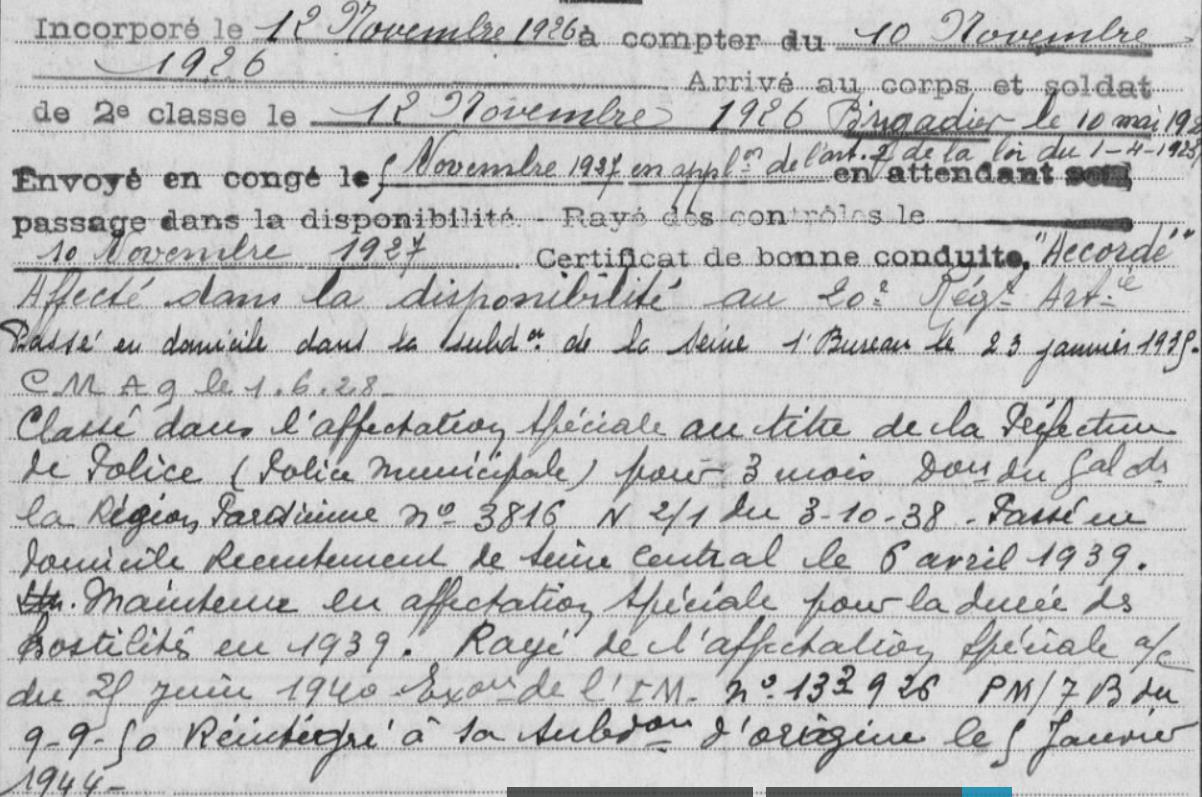 Incorporé le 12 Novembre 1926 à compter du 10 Novembre
1926 Arrivé au corps et soldat
de 2e classe le 12 Novembre 1926 Brigadier le 10 mai 192
Novembre 1927 en applon de l'art. 2 de la loi du 1-4-1923
Envoyé en congé le 5 en attendant son
passage dans la disponibilité. - Rayé des contrôles le
10 Novembre 1927. Certificat de bonne conduite, "Accordé"
Affecté dans la disponibilité au 20e Régt Artie
Passé en domicile dans la subdon de la Seine 1r Bureau le 23 janvier 1935.
C M A 9 le 1.6.28.
Classé dans l'affectation spéciale au titre de la Préfecture
de Police (Police Municipale) pour 3 mois Don du Gal de
la Région Parisienne no 3816 N 2/1 du 3-10-38 - Passé en
domicile Recrutement de Seine Central le 6 avril 1939.
Maintenu en affectation spéciale pour la durée des
hostilités en 1939. Rayé de l'affectation spéciale a/c
du 25 juin 1940 Exon de l'I.M. no 133926 PM/7 B du
9-9-50 Réintégré à sa subdon d'origine le 5 Janvier
1944-